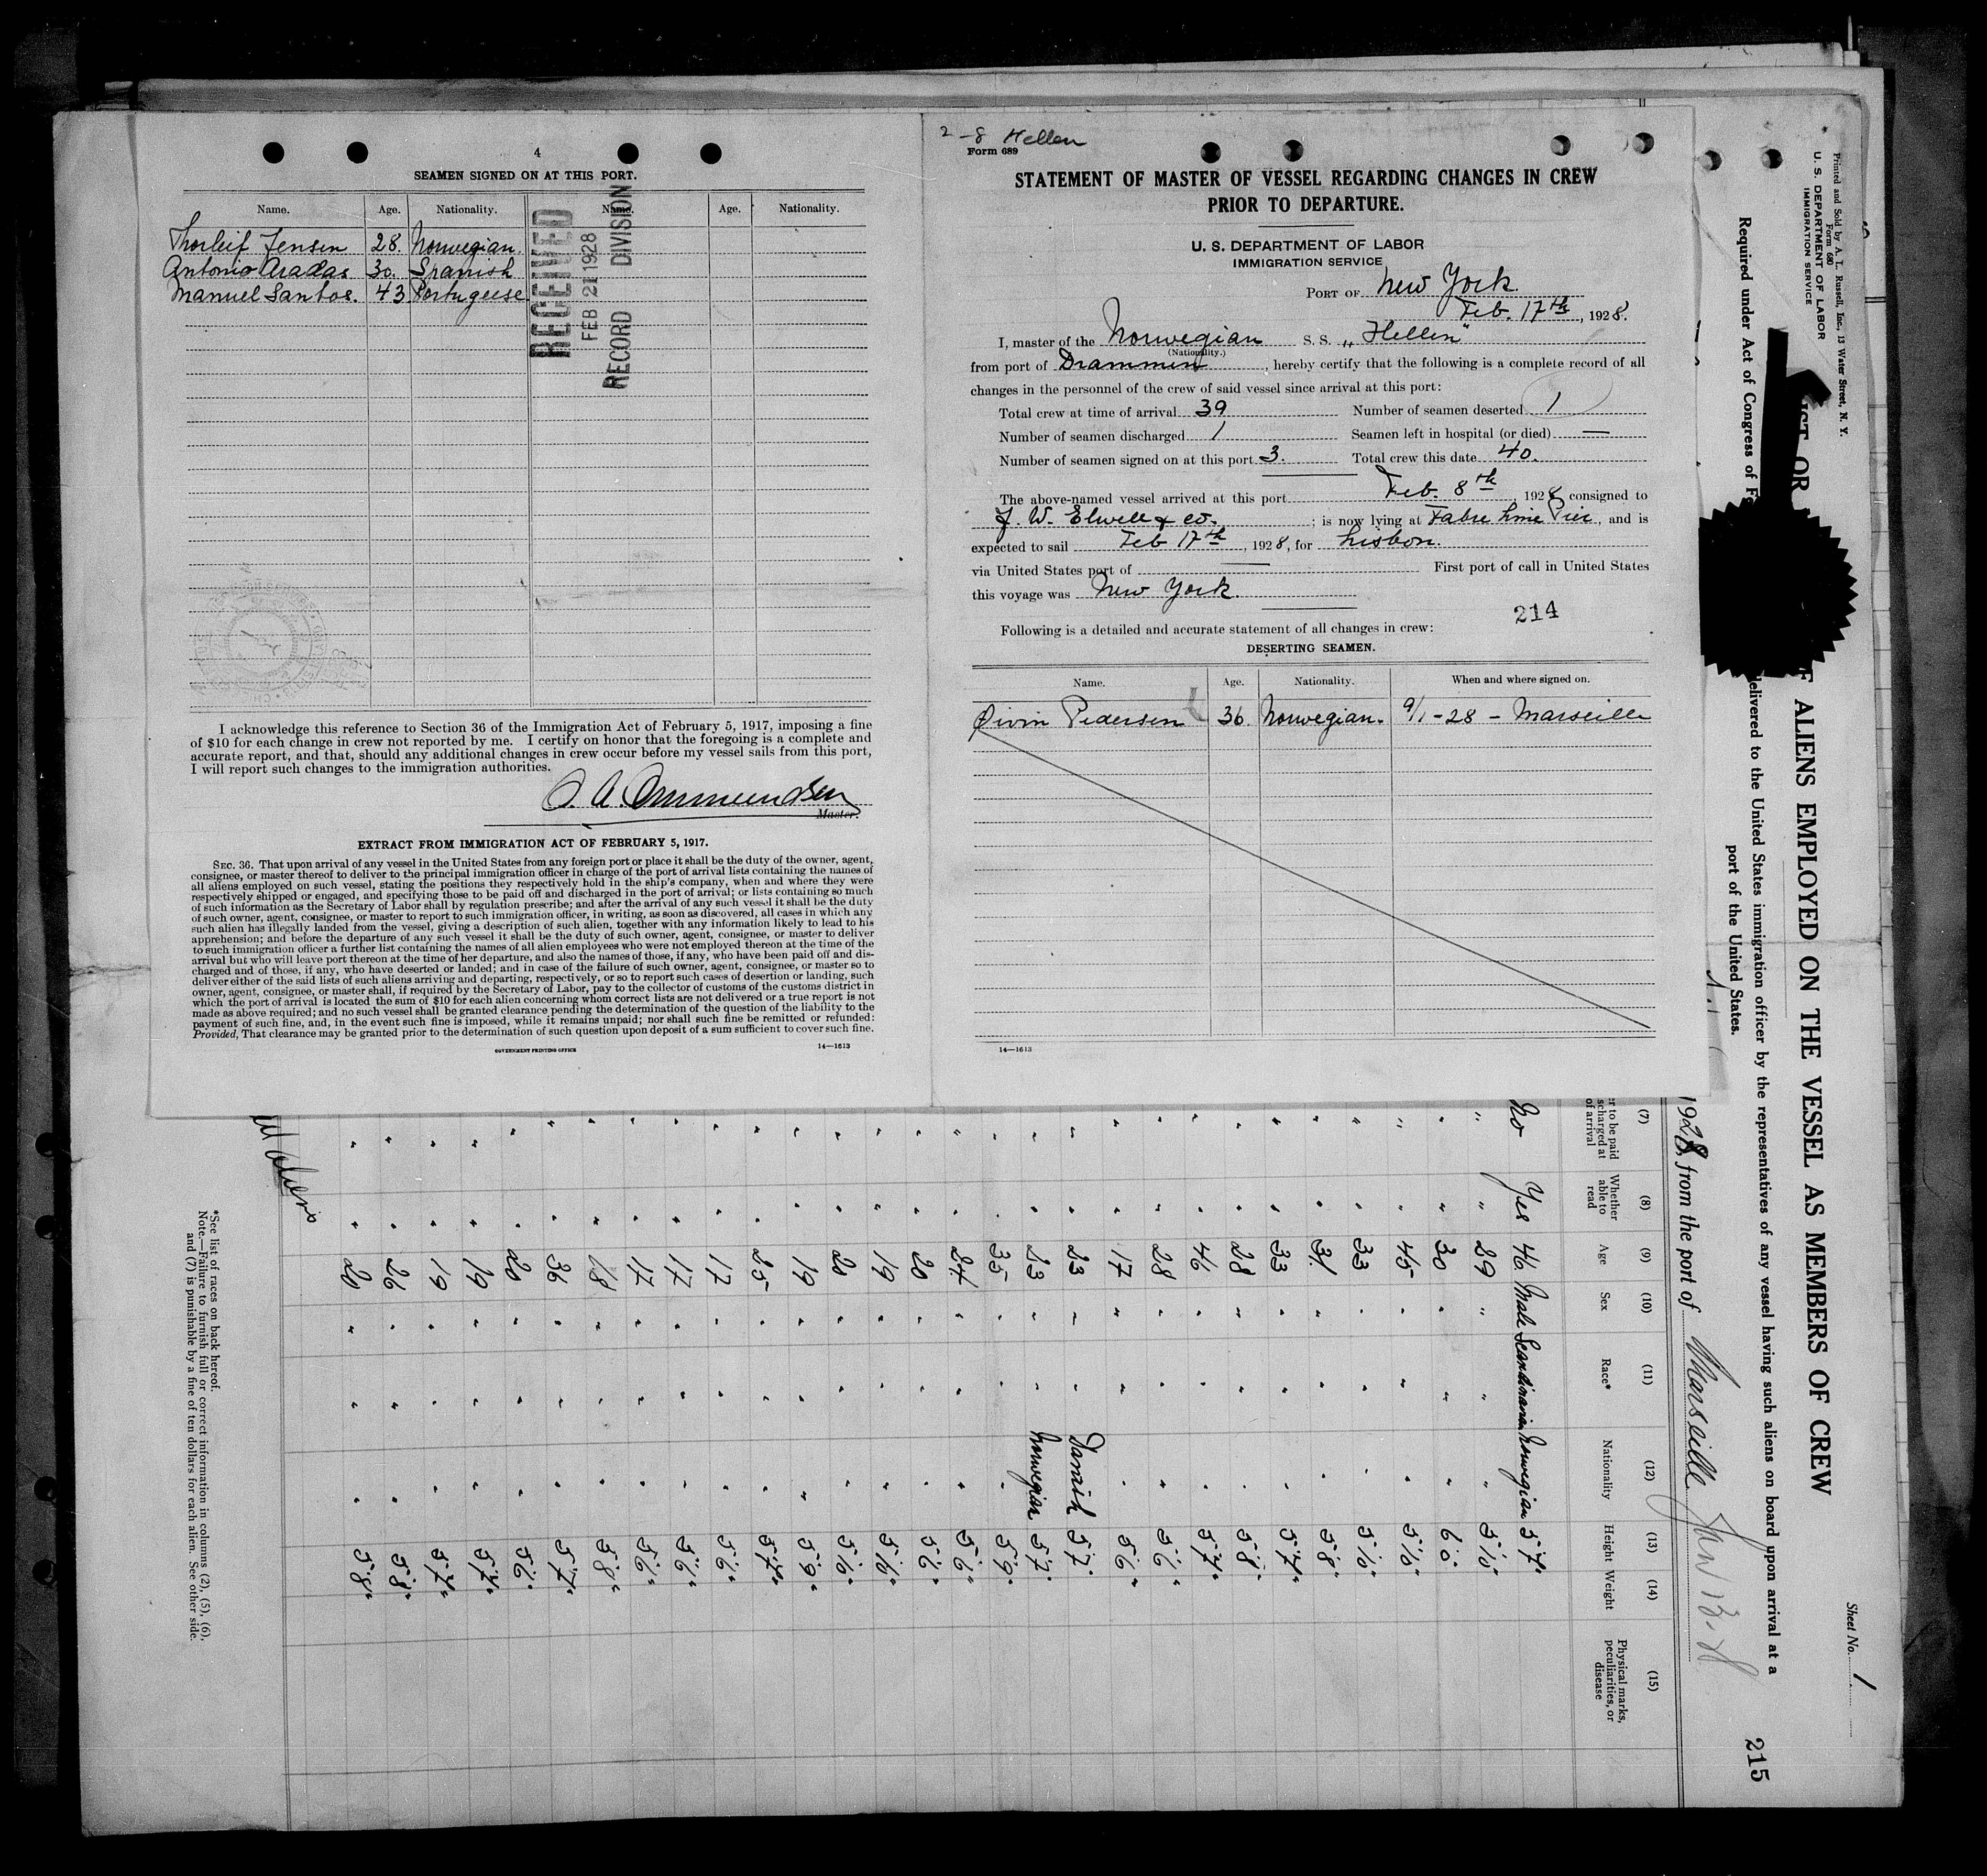 4
SEAMEN SIGNED ON AT THIS PORT.
Name. Age. Nationality. Name. Age. Nationality.
Thorleif Jensen 28. Norwegian.
Antonio Aradas 30. Spanish
Manuel Santos. 43 Portugeese
RECEIVED
FEB 21 1928
RECORD DIVISION
I acknowledge this reference to Section 36 of the Immigration Act of February 5, 1917, imposing a fine
of $10 for each change in crew not reported by me. I certify on honor that the foregoing is a complete and
accurate report, and that, should any additional changes in crew occur before my vessel sails from this port,
I will report such changes to the immigration authorities.
Master.
EXTRACT FROM IMMIGRATION ACT OF FEBRUARY 5, 1917.
SEC. 36. That upon arrival of any vessel in the United States from any foreign port or place it shall be the duty of the owner, agent,
consignee, or master thereof to deliver to the principal immigration officer in charge of the port of arrival lists containing the names of
all aliens employed on such vessel, stating the positions they respectively hold in the ship's company, when and where they were
respectively shipped or engaged, and specifying those to be paid off and discharged in the port of arrival; or lists containing so much
of such information as the Secretary of Labor shall by regulation prescribe; and after the arrival of any such vessel it shall be the duty
of such owner, agent, consignee, or master to report to such immigration officer, in writing, as soon as discovered, all cases in which any
such alien has illegally landed from the vessel, giving a description of such alien, together with any information likely to lead to his
apprehension; and before the departure of any such vessel it shall be the duty of such owner, agent, consignee, or master to deliver
to such immigration officer a further list containing the names of all alien employees who were not employed thereon at the time of the
arrival but who will leave port thereon at the time of her departure, and also the names of those, if any, who have been paid off and dis-
charged and of those, if any, who have deserted or landed; and in case of the failure of such owner, agent, consignee, or master so to
deliver either of the said lists of such aliens arriving and departing, respectively, or so to report such cases of desertion or landing, such
owner, agent, consignee, or master shall, if required by the Secretary of Labor, pay to the collector of customs of the customs district in
which the port of arrival is located the sum of $10 for each alien concerning whom correct lists are not delivered or a true report is not
made as above required; and no such vessel shall be granted clearance pending the determination of the question of the liability to the
payment of such fine, and, in the event such fine is imposed, while it remains unpaid; nor shall such fine be remitted or refunded:
Provided, That clearance may be granted prior to the determination of such question upon deposit of a sum sufficient to cover such fine.
GOVERNMENT PRINTING OFFICE
14—1613
2-8 Hellen
Form 689
STATEMENT OF MASTER OF VESSEL REGARDING CHANGES IN CREW
PRIOR TO DEPARTURE.
U. S. DEPARTMENT OF LABOR
IMMIGRATION SERVICE
PORT OF New York.
Feb. 17th, 1928.
I, master of the Norwegian S. S. „Hellen"
(Nationality.)
from port of Drammen, hereby certify that the following is a complete record of all
changes in the personnel of the crew of said vessel since arrival at this port:
Total crew at time of arrival 39 Number of seamen deserted 1
Number of seamen discharged 1 Seamen left in hospital (or died) —
Number of seamen signed on at this port 3. Total crew this date 40.
The above-named vessel arrived at this port Feb. 8th, 1928 consigned to
J. W. Elwell & co.; is now lying at Fabre Line Pier, and is
expected to sail Feb 17th, 1928, for Lisbon.
via United States port of — First port of call in United States
this voyage was New York.
214
Following is a detailed and accurate statement of all changes in crew:
DESERTING SEAMEN.
Name. Age. Nationality. When and where signed on.
Øivin Pedersen 36. Norwegian. 9/1-28 - Marseille
14—1613
Printed and Sold by A. L. Russell, Inc., 13 Water Street, N. Y.
Form 680
U. S. DEPARTMENT OF LABOR
IMMIGRATION SERVICE
Sheet No. 1
215
ALIENS EMPLOYED ON THE VESSEL AS MEMBERS OF CREW
Required under Act of Congress of
delivered to the United States immigration officer by the representatives of any vessel having such aliens on board upon arrival at a
port of the United States.
1928, from the port of Marseille Jan 13.
(7) (8) (9) (10) (11) (12) (13) (14) (15)
er to be paid
scharged at
of arrival
Whether
able to
read
Age
Sex
Race*
Nationality
Height
Weight
Physical marks,
peculiarities, or
disease
No Yes 46 Male Scandinavian Norwegian 5'7"
" " 29 " " " 5'10"
" " 30 " " " 6'0"
" " 45 " " " 5'10"
" " 33 " " " 5'10"
" " 31 " " " 5'8"
" " 33 " " " 5'7"
" " 28 " " " 5'8"
" " 46 " " " 5'7"
" " 28 " " " 5'6"
" " 17 " " " 5'6"
" " 23 " " Danish 5'7"
" " 23 " " Norwegian 5'7"
" " 35 " " " 5'9"
" " 24 " " " 5'6"
" " 20 " " " 5'6"
" " 19 " " " 5'6"
" " 20 " " " 5'6"
" " 19 " " " 5'9"
" " 25 " " " 5'7"
" " 17 " " " 5'6"
" " 17 " " " 5'6"
" " 17 " " " 5'6"
" " 18 " " " 5'8"
" " 36 " " " 5'7"
" " 20 " " " 5'6"
" " 19 " " " 5'7"
" " 19 " " " 5'7"
" " 26 " " " 5'8"
" " 20 " " " 5'8"
*See list of races on back hereof.
Note.—Failure to furnish full or correct information in columns (2), (5), (6),
and (7) is punishable by a fine of ten dollars for each alien. See other side.